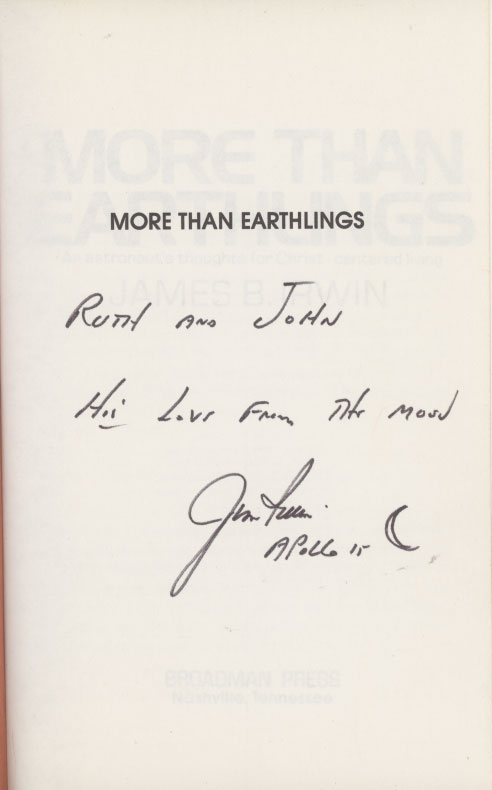 MORE THAN EARTHLINGS
MORE THAN
EARTHLINGS
An astronaut's thoughts for Christ-centered living
JAMES B. IRWIN
RUTH AND JOHN
HIS LOVE FROM THE MOON
Jim Irwin
APOLLO 15
BROADMAN PRESS
Nashville, Tennessee